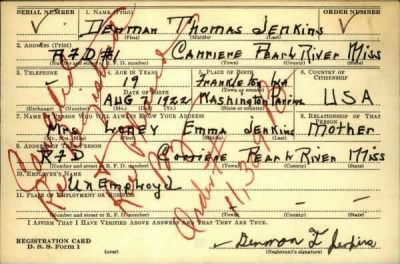 SERIAL NUMBER 1. NAME (Print) ORDER NUMBER
Denman Thomas Jenkins
(First) (Middle) (Last)
2. ADDRESS (Print)
RFD #1 Carriere Pearl River Miss
(Number and street or R. F. D. number) (Town) (County) (State)
3. TELEPHONE 4. AGE IN YEARS 5. PLACE OF BIRTH 6. COUNTRY OF CITIZENSHIP
19 Franklinton
DATE OF BIRTH (Town or county)
Aug 1922 Washington U S A
(Exchange) (Number) (Mo.) (Day) (Yr.) (State or country)
7. NAME OF PERSON WHO WILL ALWAYS KNOW YOUR ADDRESS 8. RELATIONSHIP OF THAT PERSON
Mrs Loney Emma Jenkins Mother
(Mr., Mrs., Miss) (First) (Middle) (Last)
9. ADDRESS OF THAT PERSON
RFD Carriere Pearl River Miss
(Number and street or R. F. D. number) (Town) (County) (State)
10. EMPLOYER'S NAME
Unemployd
11. PLACE OF EMPLOYMENT OR BUSINESS
(Number and street or R. F. D. number) (Town) (County) (State)
I AFFIRM THAT I HAVE VERIFIED ABOVE ANSWERS AND THAT THEY ARE TRUE.
REGISTRATION CARD
D. S. S. Form 1
Denmon T Jenkins
(Registrant's signature)